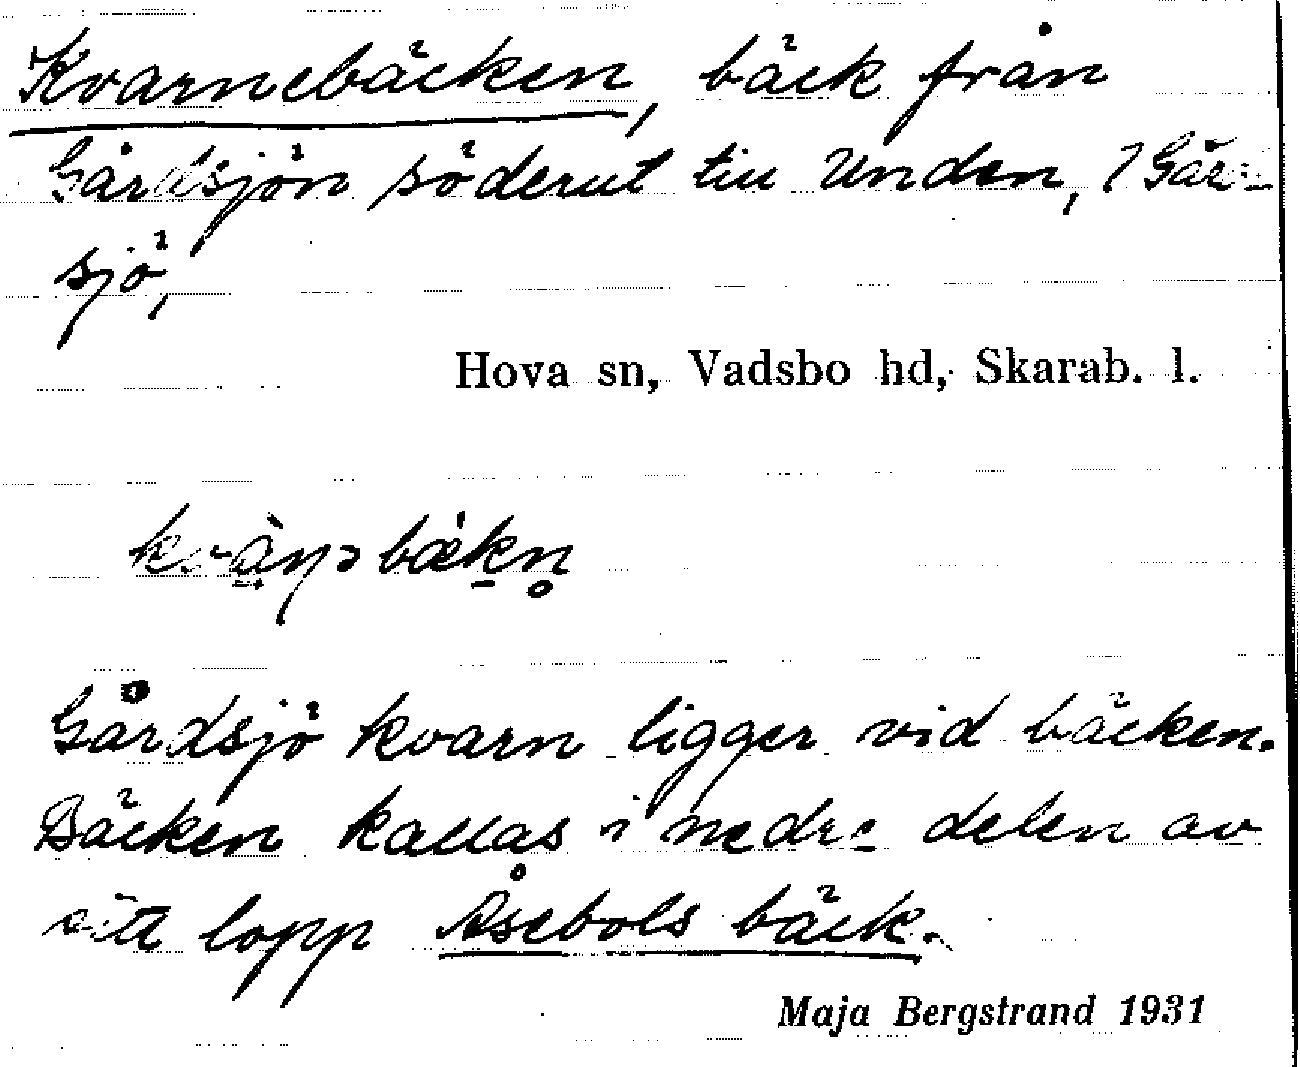 Kvarnebäcken, bäck från
Gårdsjön söderut till Unden, i Går-
sjö,
Hova sn, Vadsbo hd, Skarab. l.
Gårdsjö kvarn ligger vid bäcken.
Bäcken kallas i nedre delen av
sitt lopp Åsebols bäck.
Maja Bergstrand 1931